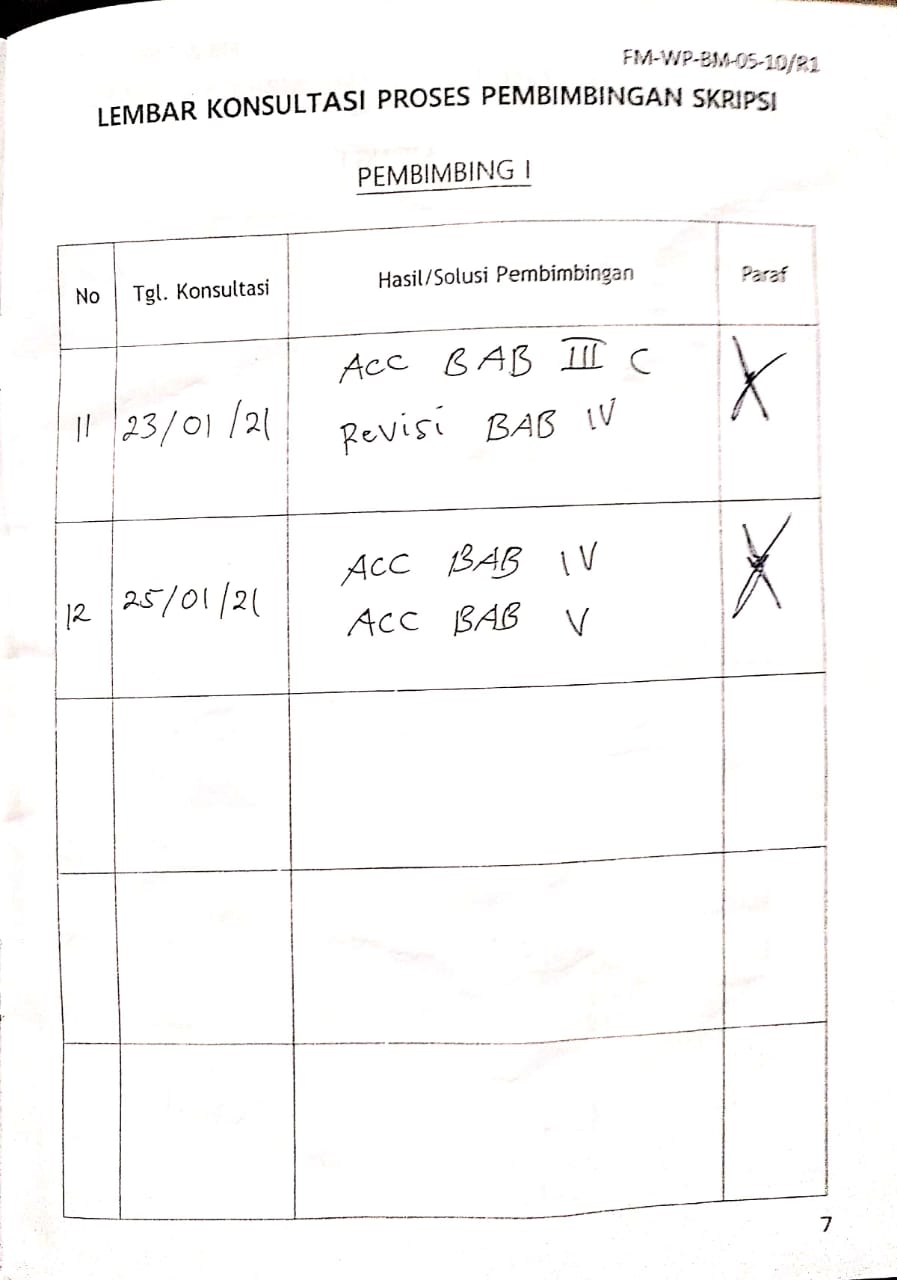 FM-WP-BM-05-10/R1
LEMBAR KONSULTASI PROSES PEMBIMBINGAN SKRIPSI
PEMBIMBING I
No Tgl. Konsultasi Hasil/Solusi Pembimbingan Paraf
11 23/01/21 ACC BAB III C
Revisi BAB IV
12 25/01/21 ACC BAB IV
ACC BAB V
7